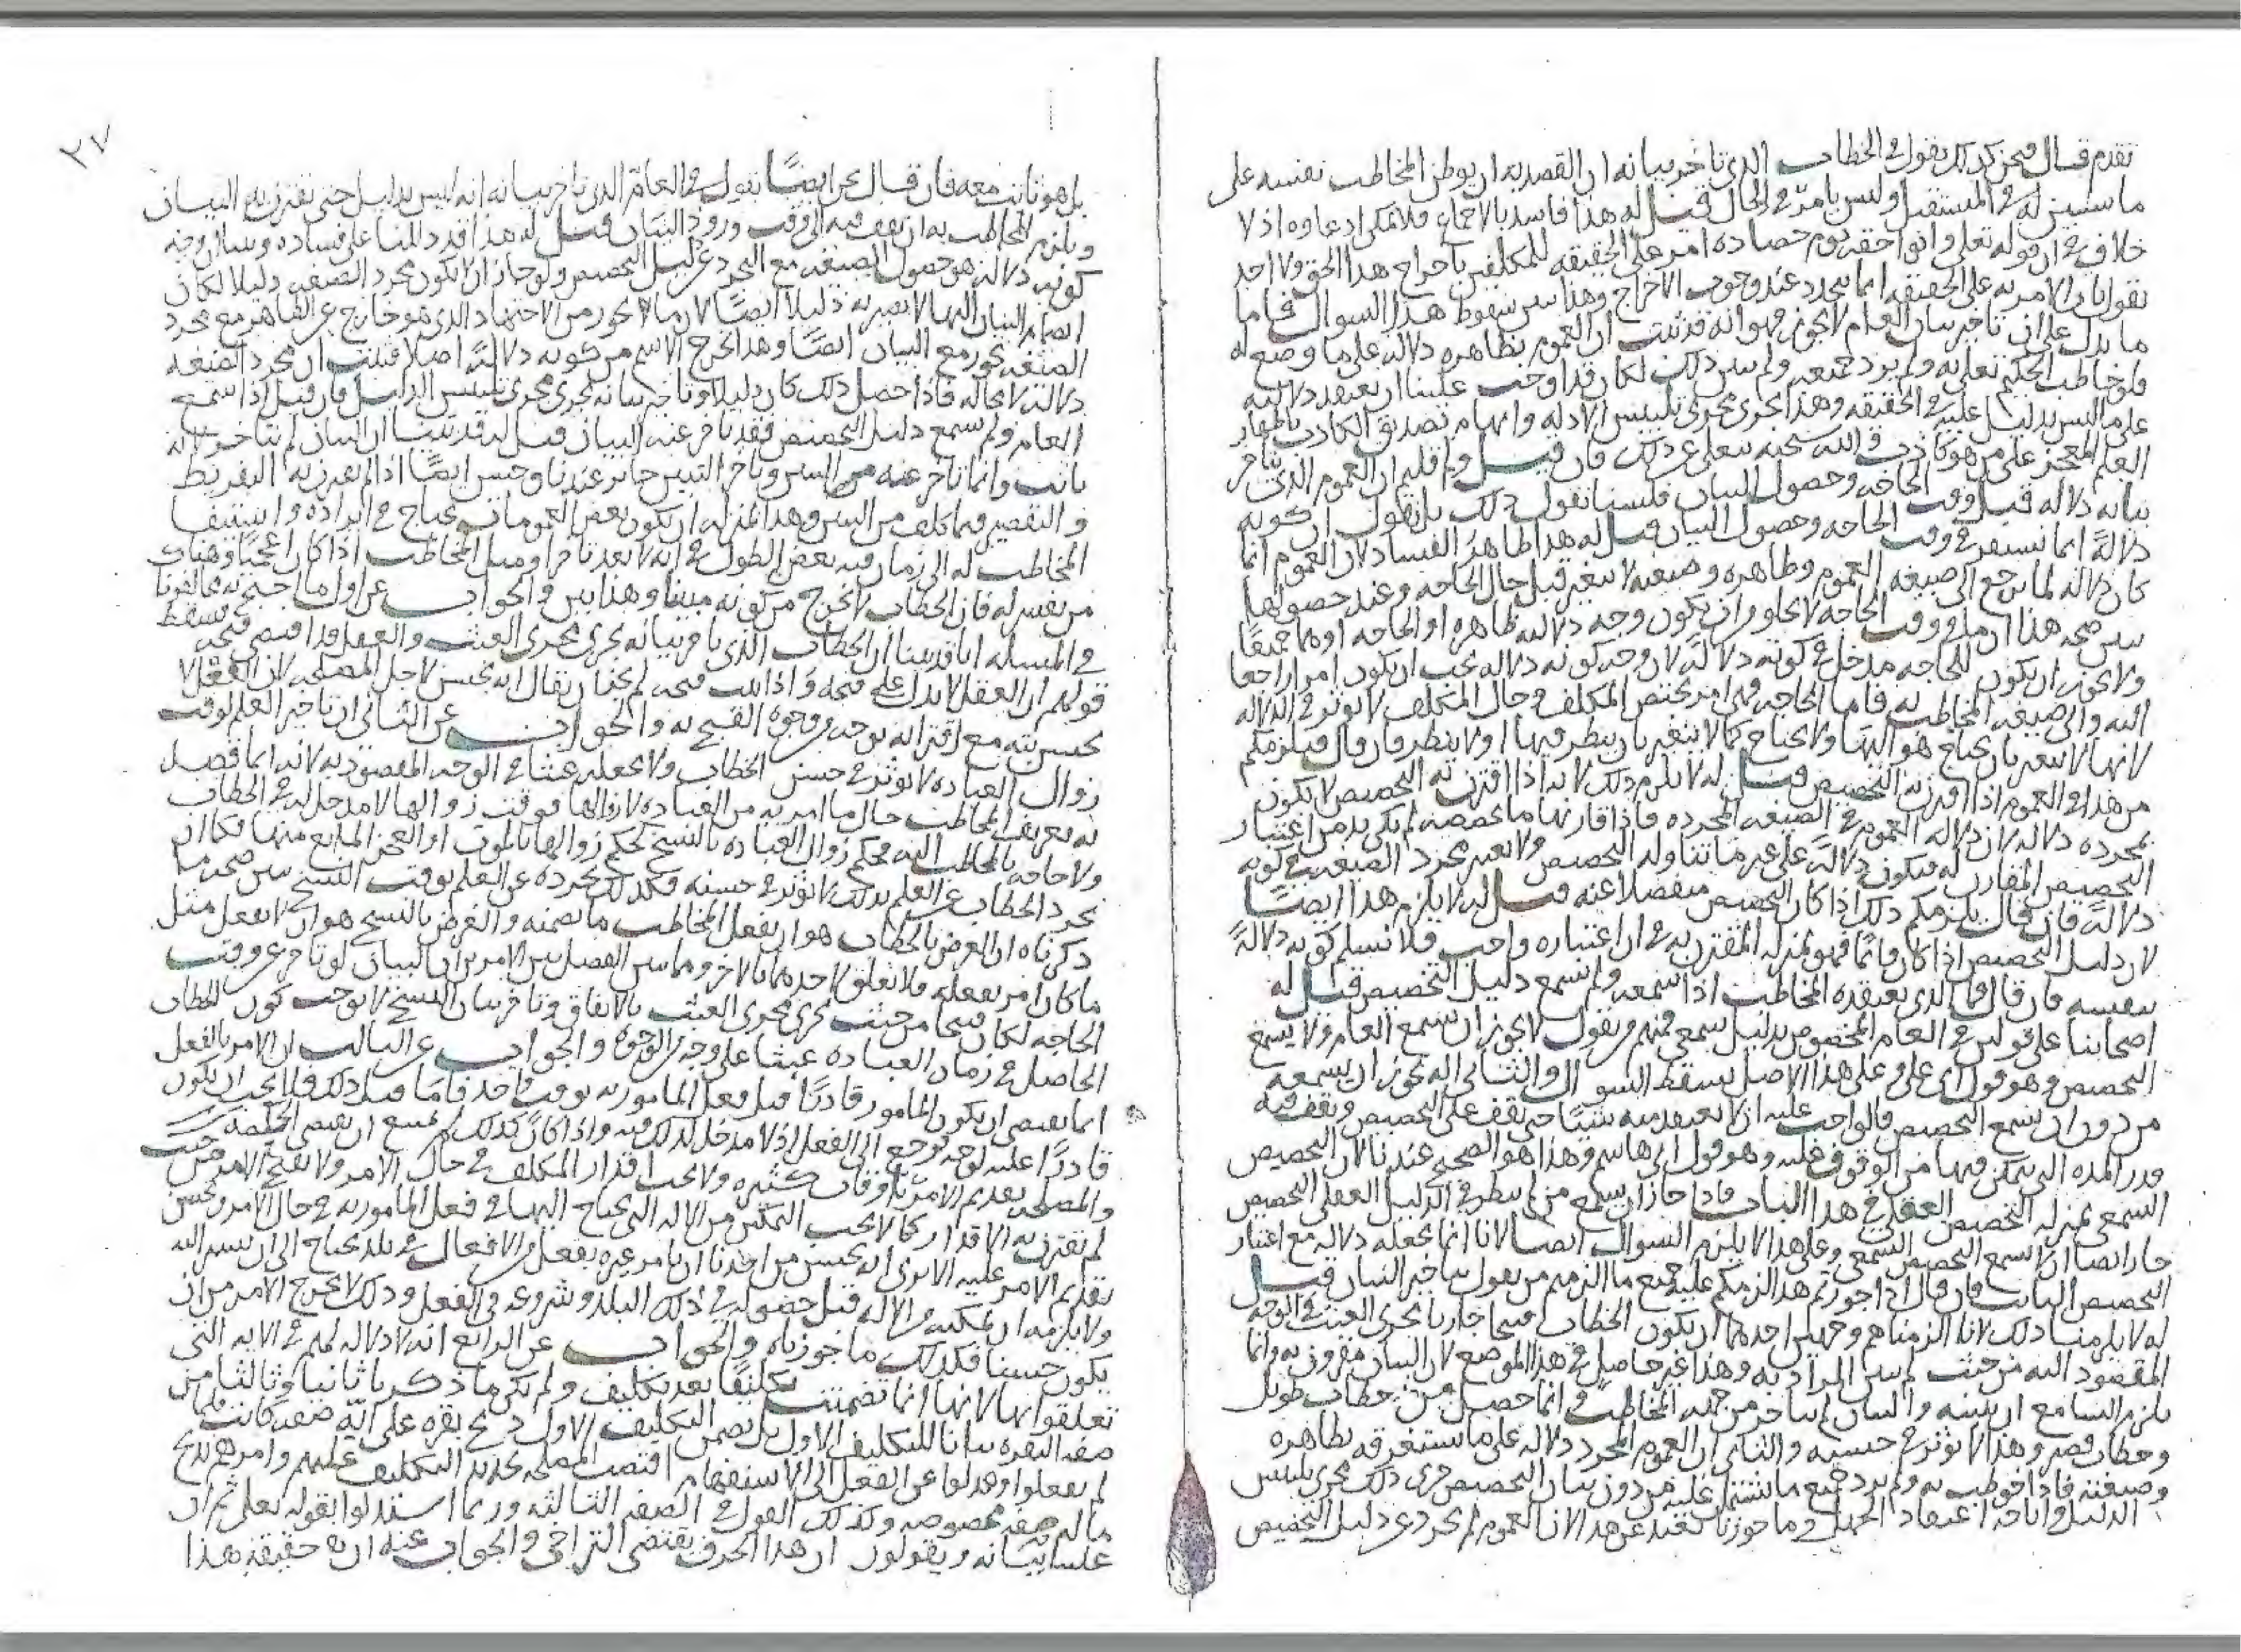 تقدم قال فنحن كذلك نقول في الخطاب الذي تاخر بيانه ان القصد به ان يوطن المخاطب نفسه على
ما سنبين له في المستقبل وليس بامر في الحال قيل له هذا فاسد بالاجماع فلا يمكن ادعاوه اذ لا
خلاف في ان قوله تعلى واتوا حقه يوم حصاده امر على الحقيقة للمكلفين باخراج هذا الحق ولا احد
يقول بان الامر به على الحقيقة انما يتجدد عند وجوب الاخراج وهذا يبين سقوط هذا السوال فاما
ما يدل على ان تاخير بيان العام لا يجوز فهو انه قد ثبت ان العموم بظاهره دلاله على ما وضع له
فلو خاطب الحكيم تعلى به ولم يرد جميعه ولم يبين ذلك لكان قد اوجب علينا ان نعتقد دلالته
على ما ليس بدليل عليه في الحقيقة وهذا يجري مجرى تلبيس الادلة وايهام تصديق الكاذب باظهار
العلم المعجز على من هو كاذب والله سبحنه يتعلى عن ذلك فان قيل ولم قلتم ان العموم الذي يتاخر
بيانه دلاله قبل وقت الحاجه وحصول البيان فلسنا نقول ذلك بل نقول ان كونه
دلالة انما تستقر في وقت الحاجه وحصول البيان قيل له هذا ظاهر الفساد لان العموم انما
كان دلالة لما يرجع الى صيغة العموم وظاهره وصيغته لا تتغير قبل حال الحاجه وعند حصولها
يبين صحه هذا ان وقت الحاجه لا يخلو من ان يكون وجه دلالته ظاهره او الحاجه او هما جميعا
ولا يجوز ان يكون للحاجه مدخل في كونه دلالة لان وجه كونه دلاله يجب ان يكون امرا راجعا
اليه والى صيغه المخاطب به فاما الحاجه فهي امر يختص المكلف وحال المكلف لا يوثر في الدلاله
لانها لا تتغير بان يحتاج هو اليها ولا يحتاج كما لا تتغير بان ينظر فيها او لا ينظر فان قال فيلزمكم
من هذا في العموم اذا اقترن به التخصيص قيل له لا يلزم ذلك لانه اذا اقترن به التخصيص لا يكون
بمجرده دلاله لان دلالة العموم في الصيغه المجرده فاذا قارنها ما يخصصه لم يكن بد من اعتبار
التخصيص المقارن له فيكون دلالة على غير ما تناوله التخصيص ولا تعتبر مجرد الصيغه في كونه
دلالة فان قال يلزمكم ذلك اذا كان التخصيص منفصلا عنه قيل له لا يلزم هذا ايضا
لان دليل التخصيص اذا كان ثابتا فهو بمنزله المقترن به في ان اعتباره واجب فلا نسلم كونه دلالة
بنفسه فان قال فما الذي يعتقده المخاطب اذا سمعه ولم يسمع دليل التخصيص قيل له
اصحابنا على قولين في العام المخصوص بدليل سمعي فمنهم من يقول لا يجوز ان يسمع العام ولا يسمع
التخصيص وهو قول ابي علي وعلى هذا الاصل يسقط السوال والثاني انه يجوز ان يسمعه
من دون ان يسمع التخصيص فالواجب عليه ان لا يعتقد فيه شيئا حتى يقف على التخصيص ويقف فيه
قدر المده التي يتمكن فيها من الوقوف عليه وهو قول ابي هاشم وهذا هو الصحيح عندنا لان التخصيص
السمعي بمنزله التخصيص العقلي في هذا الباب فاذا جاز ان يسمع من لم ينظر في الدليل العقلي التخصيص
جاز ايضا ان لا يسمع التخصيص السمعي وعلى هذا لا يلزم السوال ايضا لانا انما نجعله دلاله مع اعتبار
التخصيص الثابت فان قال اذا جوزتم هذا لزمكم عليه جميع ما الزمتم من يقول بتاخير البيان قيل
له لا يلزمنا ذلك لانا الزمناهم وجهين احدهما ان يكون الخطاب قبيحا جاريا مجرى العبث في الوجه
المقصود اليه من حيث لم يبين المراد به وهذا غير حاصل في هذا الموضع لان البيان مقرون به وانما
يلزم السامع ان يتبينه والبيان لم يتاخر من جهه المخاطب
وخطاب قصير وهذا لا يوثر في حسنه والثاني ان العموم المجرد دلاله على ما يستغرقه بظاهره
وصيغته فاذا خوطب به ولم يرد جميع ما يشتمل عليه من دون بيان التخصيص جرى ذلك مجرى تلبيس
الدليل واباحه اعتقاد الجهل وما جوزناه بعيد عن هذا لان العموم لم يجرد عن دليل التخصيص
٢٧
بل هو ثابت معه فان قال نحن ايضا نقول في العام الذي تاخر بيانه انه ليس بدليل حتى يقترن به البيان
ويلزم المخاطب به ان يقف فيه الى وقت ورود البيان قيل له هذا قد دللنا على فساده وبينا ان وجه
كونه دلالة هو حصول الصيغه مع التجرد عن دليل التخصيص ولو جاز ان لا يكون مجرد الصيغه دليلا لكان
انضمام البيان اليها لا يصير به دليلا ايضا لان ما لا يجوز من الاجتهاد الذي هو خارج عن الظاهر مع مجرد
الصيغه يجوز مع البيان ايضا وهذا يخرج الاسم من كونه دلالة اصلا فثبت ان مجرد الصيغه
دلالة لا محاله فاذا حصل ذلك كان دليلا وتاخير بيانه يجري مجرى تلبيس الدليل فان قيل اذا سمع
العام ولم يسمع دليل التخصيص فقد تاخر عنه البيان قيل له قد بينا ان البيان لم يتاخر لانه
ثابت وانما تاخر عنه التبين وتاخر التبيين جائز عندنا وحسن ايضا اذا لم يقترن به التفريط
والتقصير فيما كلف من التبين وهذا بمنزله ان يكون بعض العمومات يحتاج في ايراده واستيفا
المخاطب له الى زمان فيه بعض الطول في انه لا يعد تاخرا وميل المخاطب اذا كان اعجميا وهناك
من يفسر له فان الخطاب لا يخرج من كونه مبينا وهذا بين والجواب عن اول ما احتج به مخالفونا
في المسله انا قد بينا ان الخطاب الذي تاخر بيانه يجري مجرى العبث والعقل قد اقتضى قبحه فسقط
قولهم ان العقل لا يدل على قبحه واذا ثبت قبحه لم يجز ان يقال انه يحسن لاجل المصلحه لان الفعل لا
يحسن شيه مع اقترانه بوجه من وجوه القبح به والجواب عن الثاني ان تاخير العلم بوقت
زوال العباده لا يوثر في حسن الخطاب ولا يجعله عبثا في الوجه المقصود به لانه انما قصد
به تعريف المخاطب حال ما امر به من العباده لا زوالها فوقت زوالها لا مدخل له في الخطاب
ولا حاجه بالمخاطب اليه فحكم زوال العباده بالنسخ كحكم زوالها بالموت او العجز المانع منها فكما ان
تجرد الخطاب عن العلم بذلك لا يوثر في حسنه فكذلك تجرده عن العلم بوقت النسخ يبين صحه ما
ذكرناه ان الغرض بالخطاب هو ان يفعل المخاطب ما تضمنه والغرض بالنسخ هو ان لا يفعل مثل
ما كان امر بفعله فلا تعلق لاحدهما بالاخر ومما يبين الفصل بين الامرين ان البيان لو تاخر عن وقت
الحاجه لكان قبيحا من حيث يجري مجرى العبث بالاتفاق وتاخر بيان النسخ لا يوجب كون الخطاب
الحاصل في زمان العباده عبثا على وجه من الوجوه والجواب عن الثالث ان الامر بالفعل
انما يقتضي ان يكون المامور قادرا قبل فعل المامور به بوقت واحد فاما قبل ذلك فلا يجب ان يكون
قادرا عليه لوجه يرجع الى الفعل اذ لا مدخل لذلك فيه واذا كان كذلك لم يمتنع ان تقتضي الحكمه
والمصلحه تقديم الامر باوقات كثيره ولا يجب اقدار المكلف في حال الامر ولا يقبح الامر من حيث
لم يقترن به الاقدار كما لا يجب التمكين من الاله التي يحتاج اليها في فعل المامور به في حال الامر ويحسن
تقديم الامر عليه الا ترى انه يحسن من احدنا ان يامر غيره بفعل من الافعال في بلد يحتاج الى ان يسير اليه
ولا يلزمه ان يمكنه من الاله قبل حصوله في ذلك البلد وشروعه في الفعل وذلك لا يخرج الامر من ان
يكون حسنا فكذلك ما جوزناه والجواب عن الرابع انه لا دلاله لهم في الايه التي
تعلقوا بها لانها انما تضمنت تكليفا بعد تكليف ولم يكن ما ذكر ثانيا وثالثا من
صفه البقره بيانا للتكليف الاول بل تضمن التكليف الاول ذبح بقره على اية صفه كانت فلما
لم يفعلوا وعدلوا عن الفعل الى الاستفهام اقتضت المصلحه تجديد التكليف عليهم وامرهم بذبح
ما له صفه مخصوصه وكذلك القول في الصفه الثالثه وربما استدلوا بقوله تعلى ثم ان
علينا بيانه ويقولون ان هذا الحرف يقتضي التراخي والجواب عنه ان حقيقة هذا